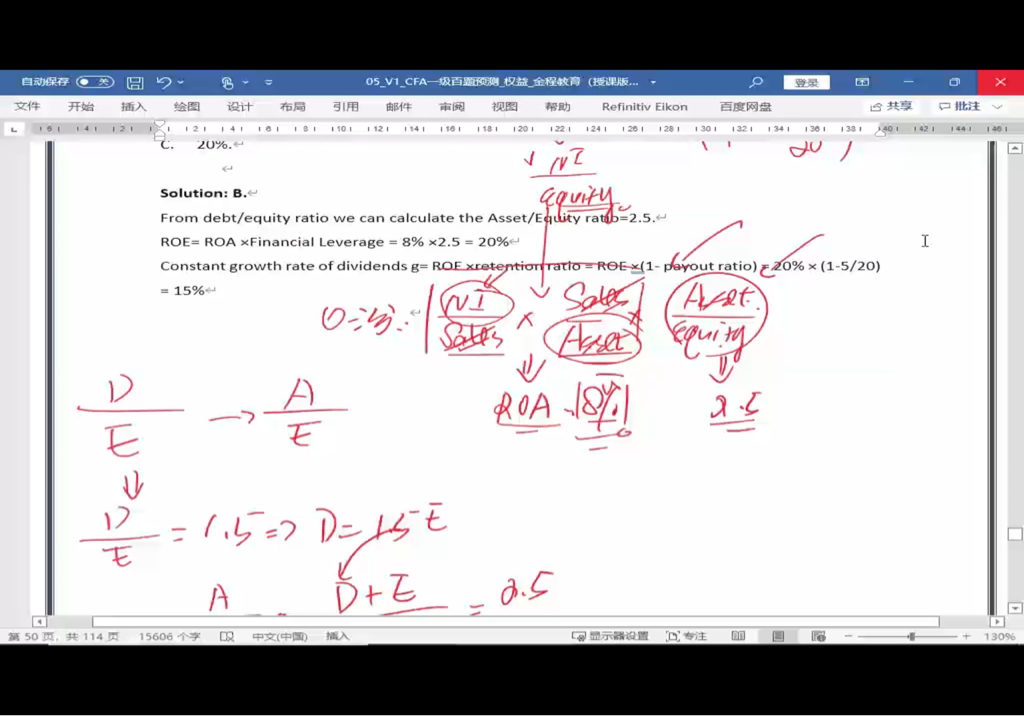 自动保存 关 05_V1_CFA一级百题预测_权益_金程教育 (授课版... 登录
文件 开始 插入 绘图 设计 布局 引用 邮件 审阅 视图 帮助 Refinitiv Eikon 百度网盘 共享 批注
C. 20%.
Solution: B.
From debt/equity ratio we can calculate the Asset/Equity ratio=2.5.
ROE= ROA ×Financial Leverage = 8% ×2.5 = 20%
Constant growth rate of dividends g= ROE ×retention ratio = ROE ×(1- payout ratio) = 20% × (1-5/20)
= 15%
NI
equity
NI × Sales × Asset
Sales Asset equity
ROA 8% 2.5
D → A
E E
D = 1.5 => D = 1.5E
E
A = D+E = 2.5
第 50 页, 共 114 页 15606 个字 中文(中国) 插入 显示器设置 专注 130%